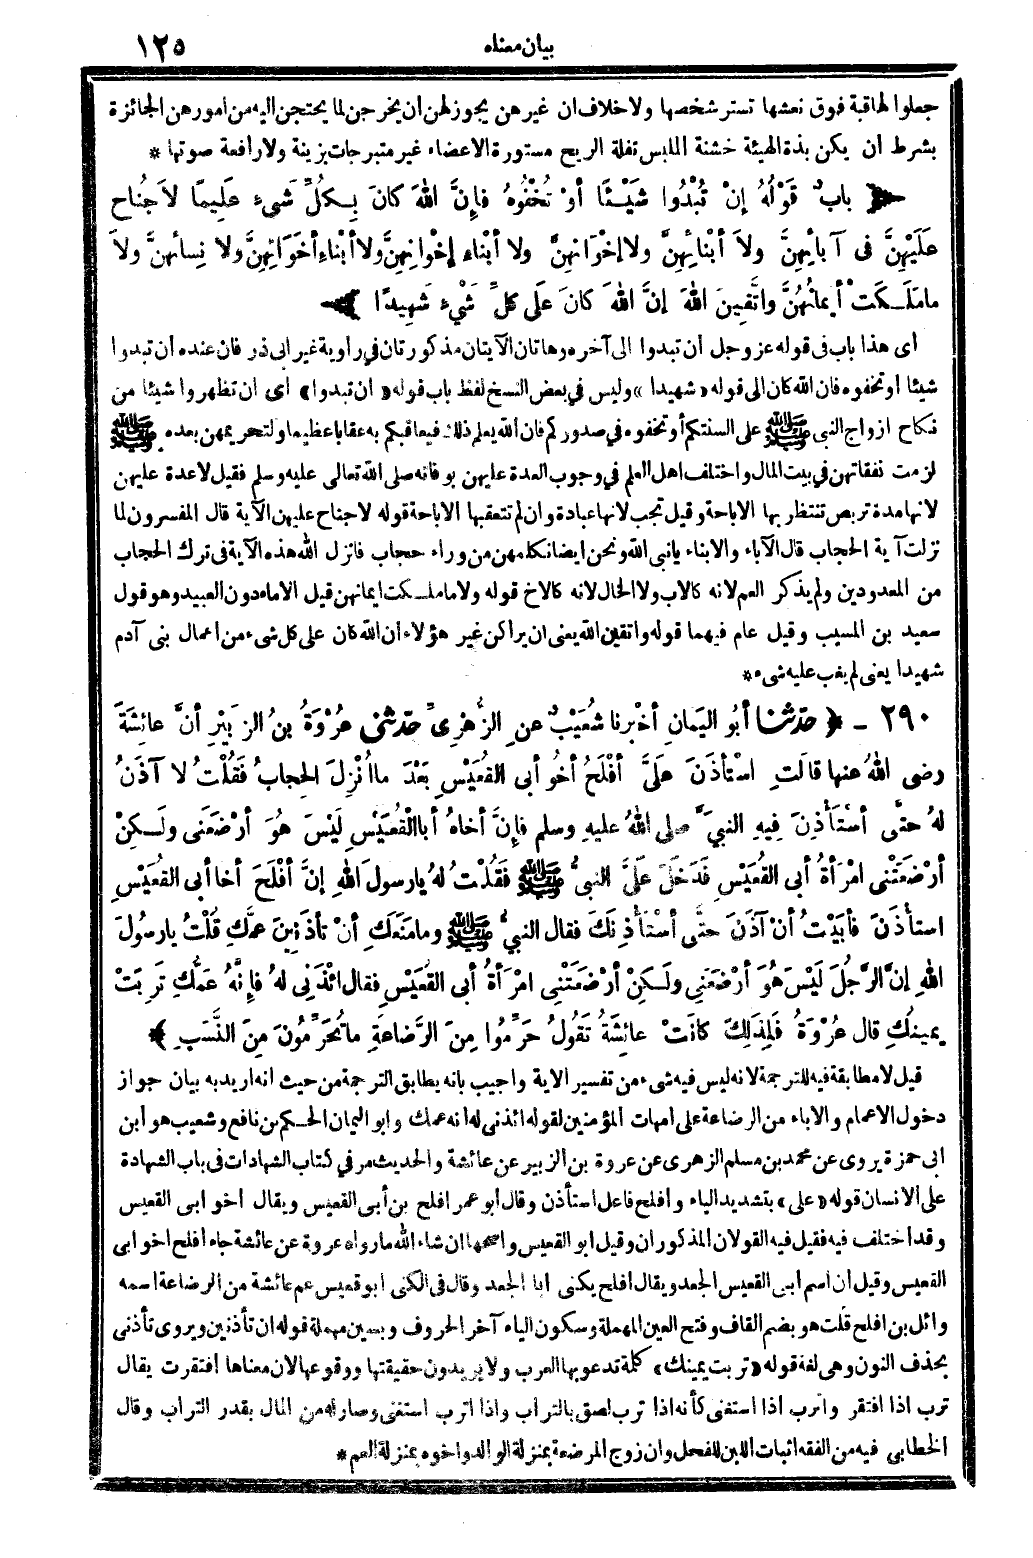 بيان معناه ١٢٥
جعلوا لها قبة فوق نعشها تستر شخصها ولا خلاف ان غيرهن يجوز لهن ان يخرجن لما يحتجن اليه من أمورهن الجائزة
بشرط ان يكن بذة الهيئة خشنة الملبس تفلة الريح مستورة الاعضاء غير متبرجات بزينة ولا رافعة صوتها *
باب قَوْلُهُ إنْ تُبْدُوا شَيْئًا أوْ تُخْفُوهُ فإنَّ اللهَ كانَ بِكُلِّ شَيءٍ عَلِيمًا لا جُناحَ
عَلَيْهِنَّ فِى آبائِهِنَّ ولاَ أبْنائِهِنَّ ولا إخْوَانِهِنَّ ولا أبْناءِ إخْوانِهِنَّ ولا أبْناءِ أخَوَاتِهِنَّ ولا نِسائهنَّ ولاَ
ما مَلَكَتْ أيمانُهُنَّ واتَّقِينَ اللهَ إنَّ اللهَ كانَ عَلَى كلِّ شَيْءٍ شَهِيدًا
أى هذا باب فى قوله عز وجل أن تبدوا الى آخره وهاتان الآيتان مذكورتان في رواية غير ابى ذر فان عنده أن تبدوا
شيئا او تخفوه فان الله كان الى قوله «شهيدا» وليس في بعض النسخ لفظ باب قوله «ان تبدوا» أى ان تظهروا شيئا من
نكاح ازواج النبى ﷺ على السنتكم أو تخفوه في صدوركم فان الله يعلم ذلك فيعاقبكم به عقابا عظيما ولتحريمهن بعده ﷺ
لزمت نفقاتهن في بيت المال واختلف اهل العلم في وجوب العدة عليهن بوفاته صلى الله تعالى عليه وسلم فقيل لا عدة عليهن
لانها مدة تربص تنتظر بها الاباحة وقيل تجب لانها عبادة وان لم تتعقبها الاباحة قوله لا جناح عليهن الآية قال المفسرون لما
نزلت آية الحجاب قال الآباء والابناء يا نبى الله ونحن ايضا نكلمهن من وراء حجاب فانزل الله هذه الآية فى ترك الحجاب
من المعدودين ولم يذكر العم لانه كالاب ولا الخال لانه كالاخ قوله ولا ما ملكت ايمانهن قيل الاماء دون العبيد وهو قول
سعيد بن المسيب وقيل عام فيهما قوله واتقين الله يعنى ان يراكن غير هؤلاء أن الله كان على كل شىء من اعمال بنى آدم
شهيدا يعنى لم يغب عليه شىء *
٢٩٠ - ﴿ حدّثنا أبُو اليَمانِ أخْبرنا شُعَيْبٌ عنِ الزُّهْرِىِّ حدّثنى عُرْوَةُ بنُ الزُّبَيْرِ أنَّ عائِشَةَ
رضى اللهُ عنها قالَتِ اسْتأذَنَ عَلَىَّ أفْلَحُ أخُو أبى القُعَيْسِ بَعْدَ ما أُنْزِلَ الحِجابُ فَقُلْتُ لا آذَنُ
لهُ حتَّى أسْتَأْذِنَ فِيهِ النبىَّ صلى اللهُ عليهِ وسلم فإنَّ أخاهُ أبا القُعَيْسِ لَيْسَ هُوَ أرْضَعَنِى ولَكِنْ
أرْضَعَتْنِى امْرَأةُ أبى القُعَيْسِ فَدَخَلَ عَلَىَّ النبىُّ ﷺ فَقُلْتُ لهُ يا رسولَ اللهِ إنَّ أفْلَحَ أخا أبى القُعَيْسِ
استأْذَنَ فأبَيْتُ أنْ آذَنَ حتَّى أسْتَأْذِنَكَ فقال النبىُّ ﷺ وما مَنَعَكِ أنْ تأذَنِينَ عمَّكِ قُلْتُ يا رسُولَ
اللهِ إنَّ الرَّجُلَ لَيْسَ هُوَ أرْضَعَنِى ولَكِنْ أرْضَعَتْنِى امْرَأةُ أبى القُعَيْسِ فقال ائْذَنِى لهُ فإنَّهُ عَمُّكِ تَرِبَتْ
يَمِينُكِ قال عُرْوَةُ فَلِذَلِكَ كانَتْ عائِشَةُ تَقُولُ حَرِّمُوا مِنَ الرَّضاعَةِ ما تُحَرِّمُونَ مِنَ النَّسَبِ ﴾
قيل لا مطابقة فيه للترجمة لانه ليس فيه شىء من تفسير الآية واجيب بانه يطابق الترجمة من حيث انه اريد به بيان جواز
دخول الاعمام والاباء من الرضاعة على امهات المؤمنين لقوله ائذنى له انه عمك وابو اليمان الحكم بن نافع وشعيب هو ابن
ابى حمزة يروى عن محمد بن مسلم الزهرى عن عروة بن الزبير عن عائشة والحديث مر في كتاب الشهادات فى باب الشهادة
على الانسان قوله «على» بتشديد الياء وأفلح فاعل استأذن وقال أبو عمر افلح بن أبى القعيس ويقال اخو ابى القعيس
وقد اختلف فيه فقيل فيه القولان المذكوران وقيل ابو القعيس واصحها ان شاء الله ما رواه عروة عن عائشة جاء افلح اخو ابى
القعيس وقيل أن اسم أبى القعيس الجعد ويقال افلح يكنى ابا الجعد وقال فى الكنى ابو قعيس عم عائشة من الرضاعة اسمه
وائل بن افلح قلت هو بضم القاف وفتح العين المهملة وسكون الياء آخر الحروف وبسين مهملة قوله ان تأذنين ويروى تأذنى
بحذف النون وهى لغة قوله «تربت يمينك» كلمة تدعو بها العرب ولا يريدون حقيقتها ووقوعها لان معناها افتقرت يقال
ترب اذا افتقر واترب اذا استغنى كأنه اذا ترب لصق بالتراب واذا اترب استغنى وصار له من المال بقدر التراب وقال
الخطابى فيه من الفقه اثبات اللبن للفحل وان زوج المرضعة بمنزلة الوالد واخوه بمنزلة العم *